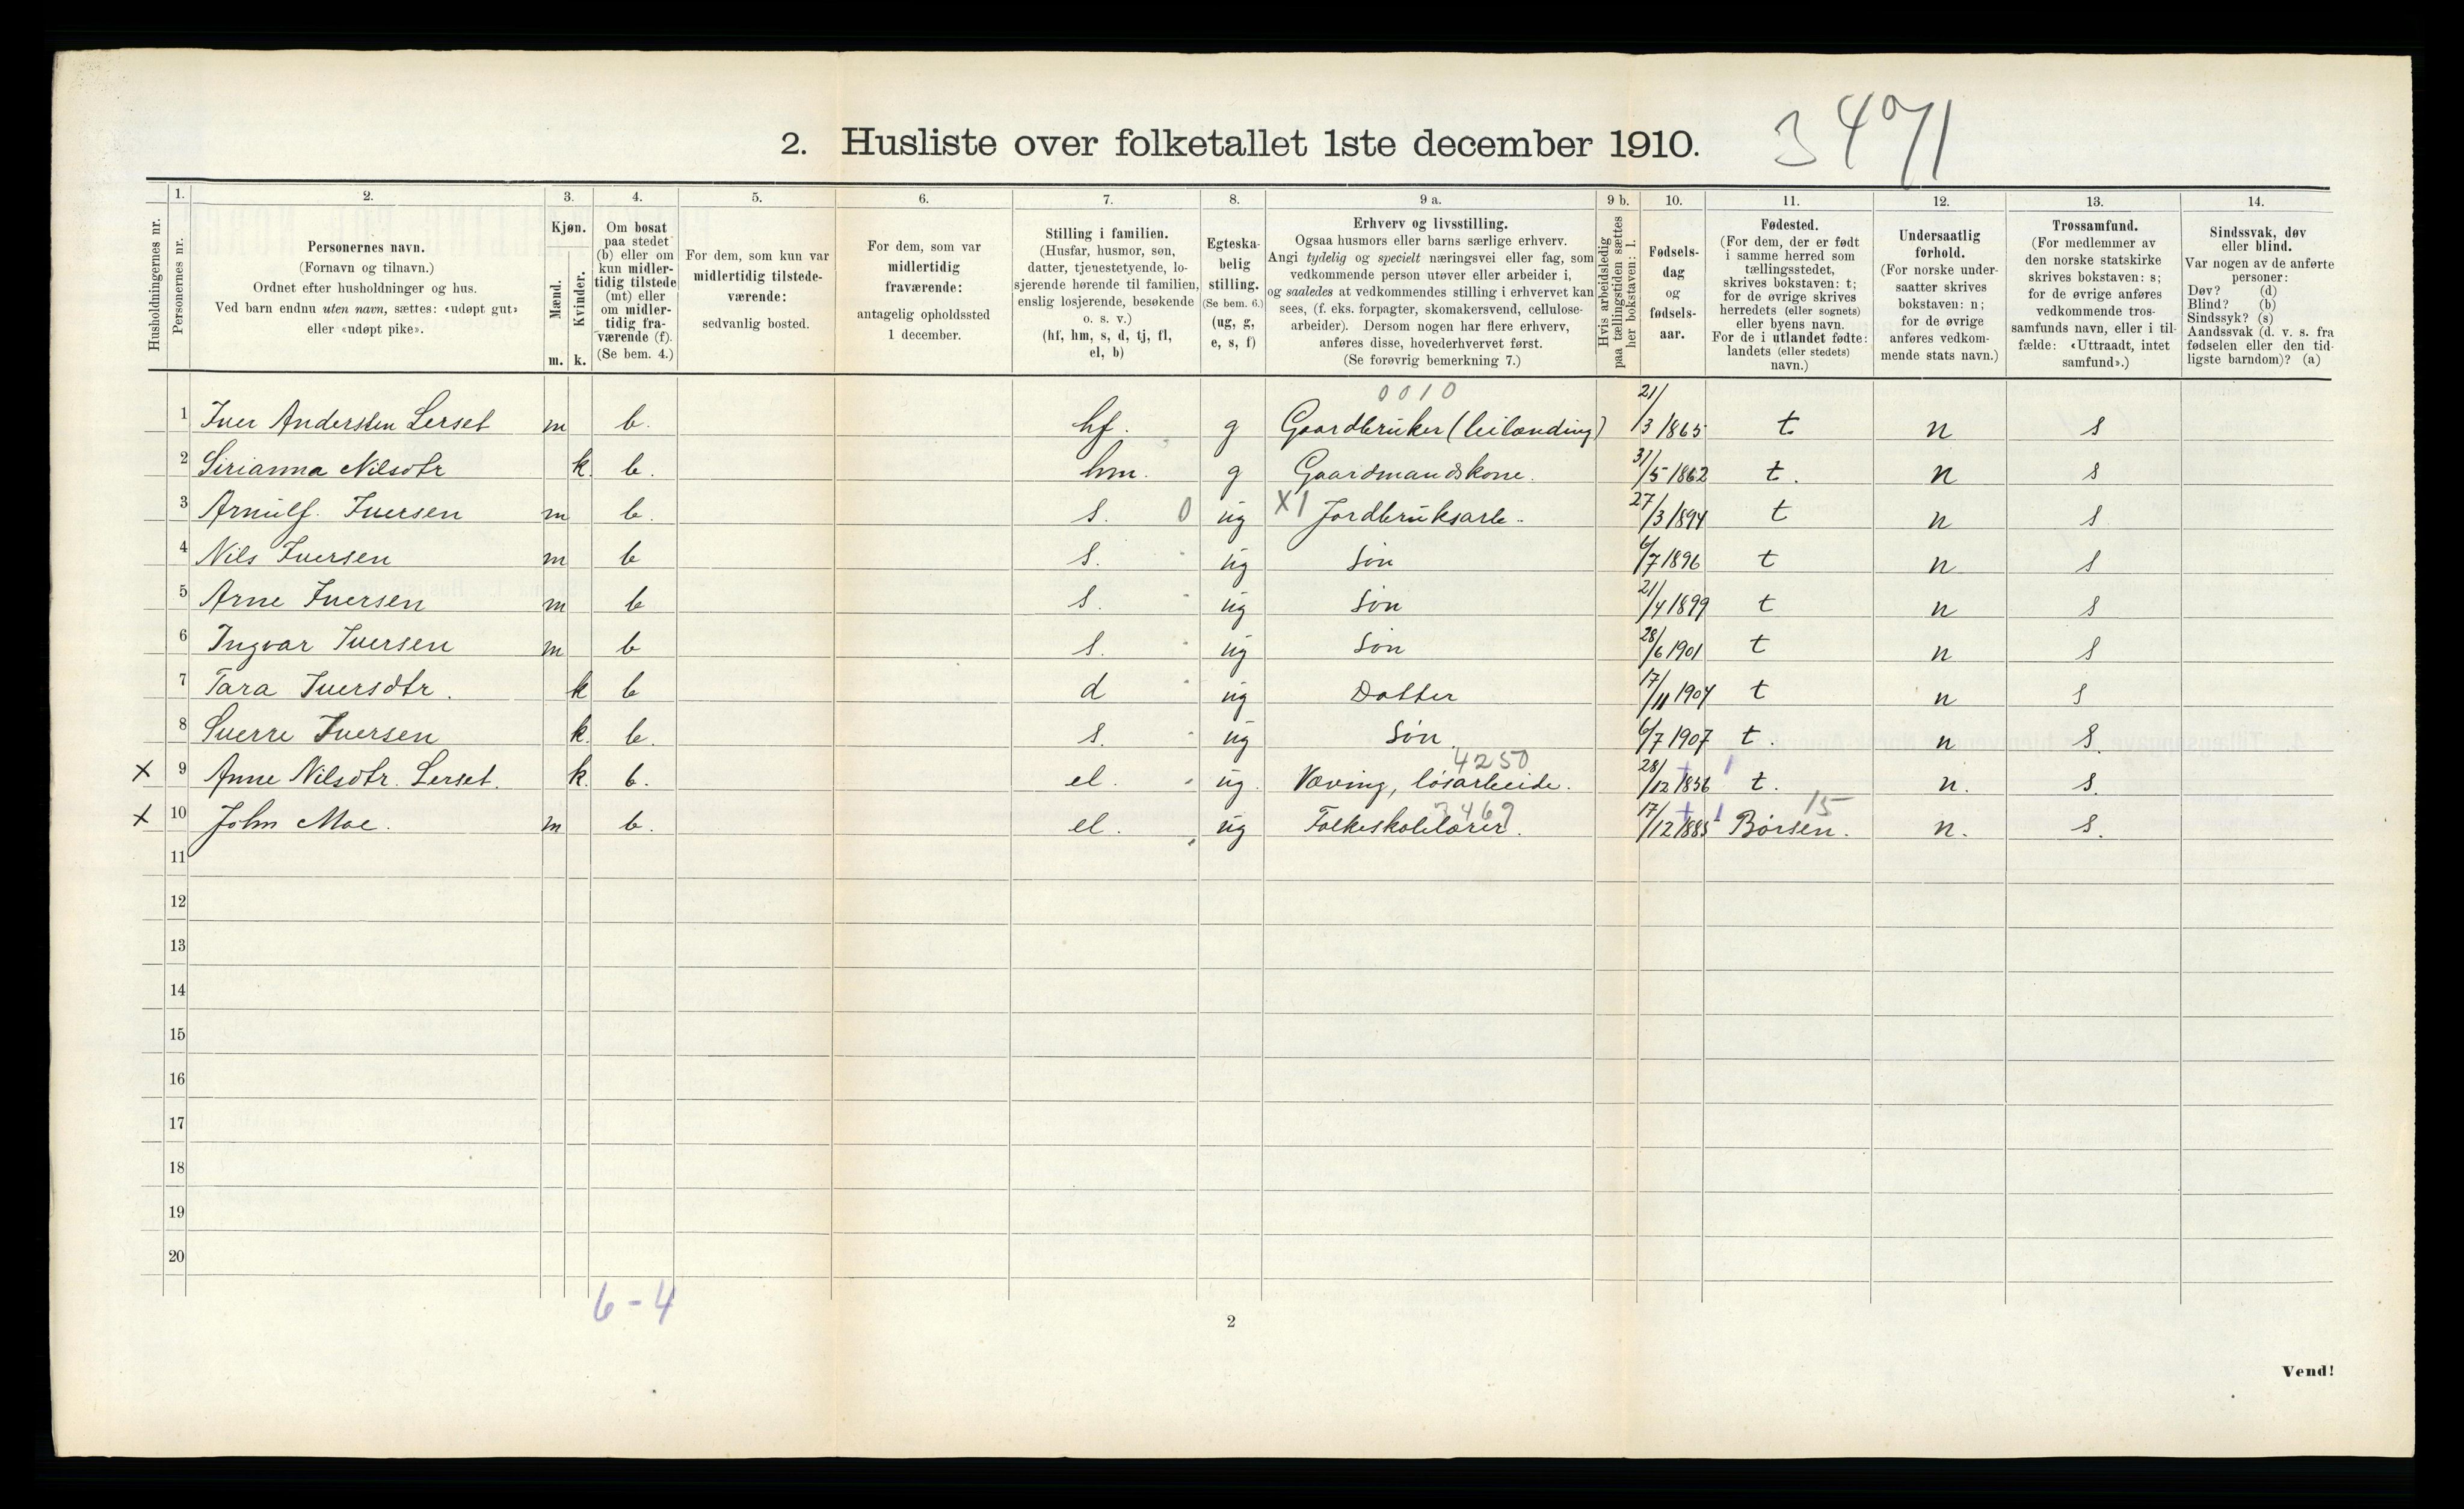 2. Husliste over folketallet 1ste december 1910. 3471
1. 2. 3. 4. 5. 6. 7. 8. 9 a. 9 b. 10. 11. 12. 13. 14.
Husholdningernes nr.
Personernes nr.
Personernes navn.
(Fornavn og tilnavn.)
Ordnet efter husholdninger og hus.
Ved barn endnu uten navn, sættes: «udøpt gut»
eller «udøpt pike».
Kjøn.
Mænd.
Kvinder.
m. k.
Om bosat
paa stedet
(b) eller om
kun midler-
tidig tilstede
(mt) eller
om midler-
tidig fra-
værende (f).
(Se bem. 4.)
For dem, som kun var
midlertidig tilstede-
værende:
sedvanlig bosted.
For dem, som var
midlertidig
fraværende:
antagelig opholdssted
1 december.
Stilling i familien.
(Husfar, husmor, søn,
datter, tjenestetyende, lo-
sjerende hørende til familien,
enslig losjerende, besøkende
o. s. v.)
(hf, hm, s, d, tj, fl,
el, b)
Egteska-
belig
stilling.
(Se bem. 6.)
(ug, g,
e, s, f)
Erhverv og livsstilling.
Ogsaa husmors eller barns særlige erhverv.
Angi tydelig og specielt næringsvei eller fag, som
vedkommende person utøver eller arbeider i,
og saaledes at vedkommendes stilling i erhvervet kan
sees, (f. eks. forpagter, skomakersvend, cellulose-
arbeider). Dersom nogen har flere erhverv,
anføres disse, hovederhvervet først.
(Se forøvrig bemerkning 7.)
Hvis arbeidsledig
paa tællingstiden sættes
her bokstaven: l.
Fødsels-
dag
og
fødsels-
aar.
Fødested.
(For dem, der er født
i samme herred som
tællingsstedet,
skrives bokstaven: t;
for de øvrige skrives
herredets (eller sognets)
eller byens navn.
For de i utlandet fødte:
landets (eller stedets)
navn.)
Undersaatlig
forhold.
(For norske under-
saatter skrives
bokstaven: n;
for de øvrige
anføres vedkom-
mende stats navn.)
Trossamfund.
(For medlemmer av
den norske statskirke
skrives bokstaven: s;
for de øvrige anføres
vedkommende tros-
samfunds navn, eller i til-
fælde: «Uttraadt, intet
samfund».)
Sindssvak, døv
eller blind.
Var nogen av de anførte
personer:
Døv? (d)
Blind? (b)
Sindssyk? (s)
Aandssvak (d. v. s. fra
fødselen eller den tid-
ligste barndom)? (a)
0010
1 Iver Anderssen Lerset m b. hf. g Gaardbruker (leilænding) 21/3 1865 t. n s
2 Sirianna Nilsdtr k. b. hm. g Gaardmandskone. 31/5 1862 t. n s
3 Arnulf. Iversen m b. s. 0 ug X1 Jordbruksarb. 27/3 1894 t n s
4 Nils Iversen m b s. ug Søn 6/7 1896 t n s
5 Arne Iversen m b s. ug Søn 21/4 1899 t n s
6 Ingvar Iversen m b s. ug Søn 28/6 1901 t n s
7 Tara Iversdtr. k b d ug Datter 17/11 1904 t n s
8 Sverre Iversen k. b. s. ug Søn 6/7 1907 t. n s.
4250
X 9 Anne Nilsdtr. Lerset. k. b. el. ug. Væving, løsarbeide. 28/12 1856 t. n. s.
3469 15
X 10 John Moe. m b. el. ug Folkeskolelærer. 17/12 1885 Børsen. n. s.
11
12
13
14
15
16
17
18
19
20
6-4
2
Vend!